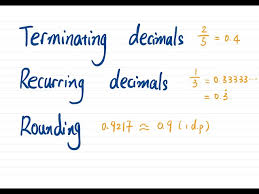 Terminating decimals 2/5 = 0.4
Recurring decimals 1/3 = 0.33333...
= 0.3̇
Rounding 0.9217 ≈ 0.9 (1 d.p)